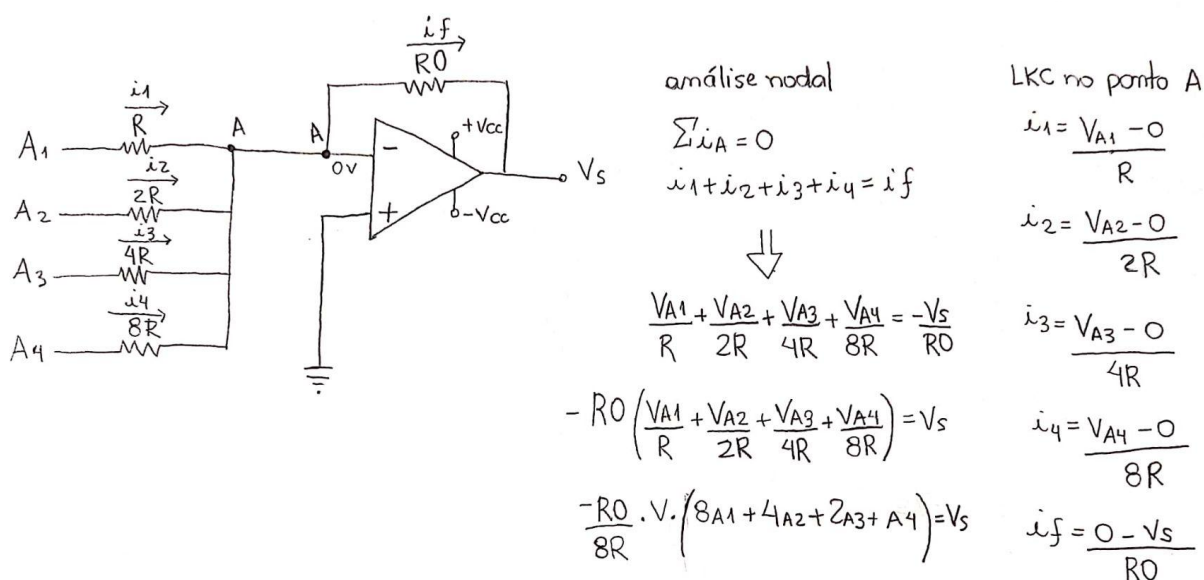 if
RO
i1
R
A1
A
A
0v
-
+Vcc
Vs
i2
2R
A2
+
-Vcc
i3
4R
A3
i4
8R
A4
análise nodal
ΣiA = 0
i1+i2+i3+i4 = if
⇓
VA1/R + VA2/2R + VA3/4R + VA4/8R = -Vs/RO
-RO(VA1/R + VA2/2R + VA3/4R + VA4/8R) = Vs
-RO/8R . V. (8A1 + 4A2 + 2A3 + A4) = Vs
LKC no ponto A
i1 = VA1 - 0/R
i2 = VA2 - 0/2R
i3 = VA3 - 0/4R
i4 = VA4 - 0/8R
if = 0 - Vs/RO